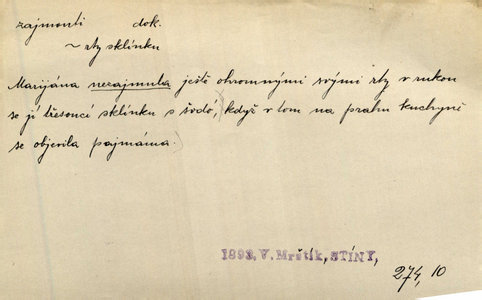 zajmouti dok.
~ rty sklínku
Marijána nezajmula ještě ohromnými svými rty v rukou
se jí třesoucí sklínku s šodó, když v tom na prahu kuchyně
se objevila pajmáma.)
1893, V. Mrštík, STÍNY,
274, 10